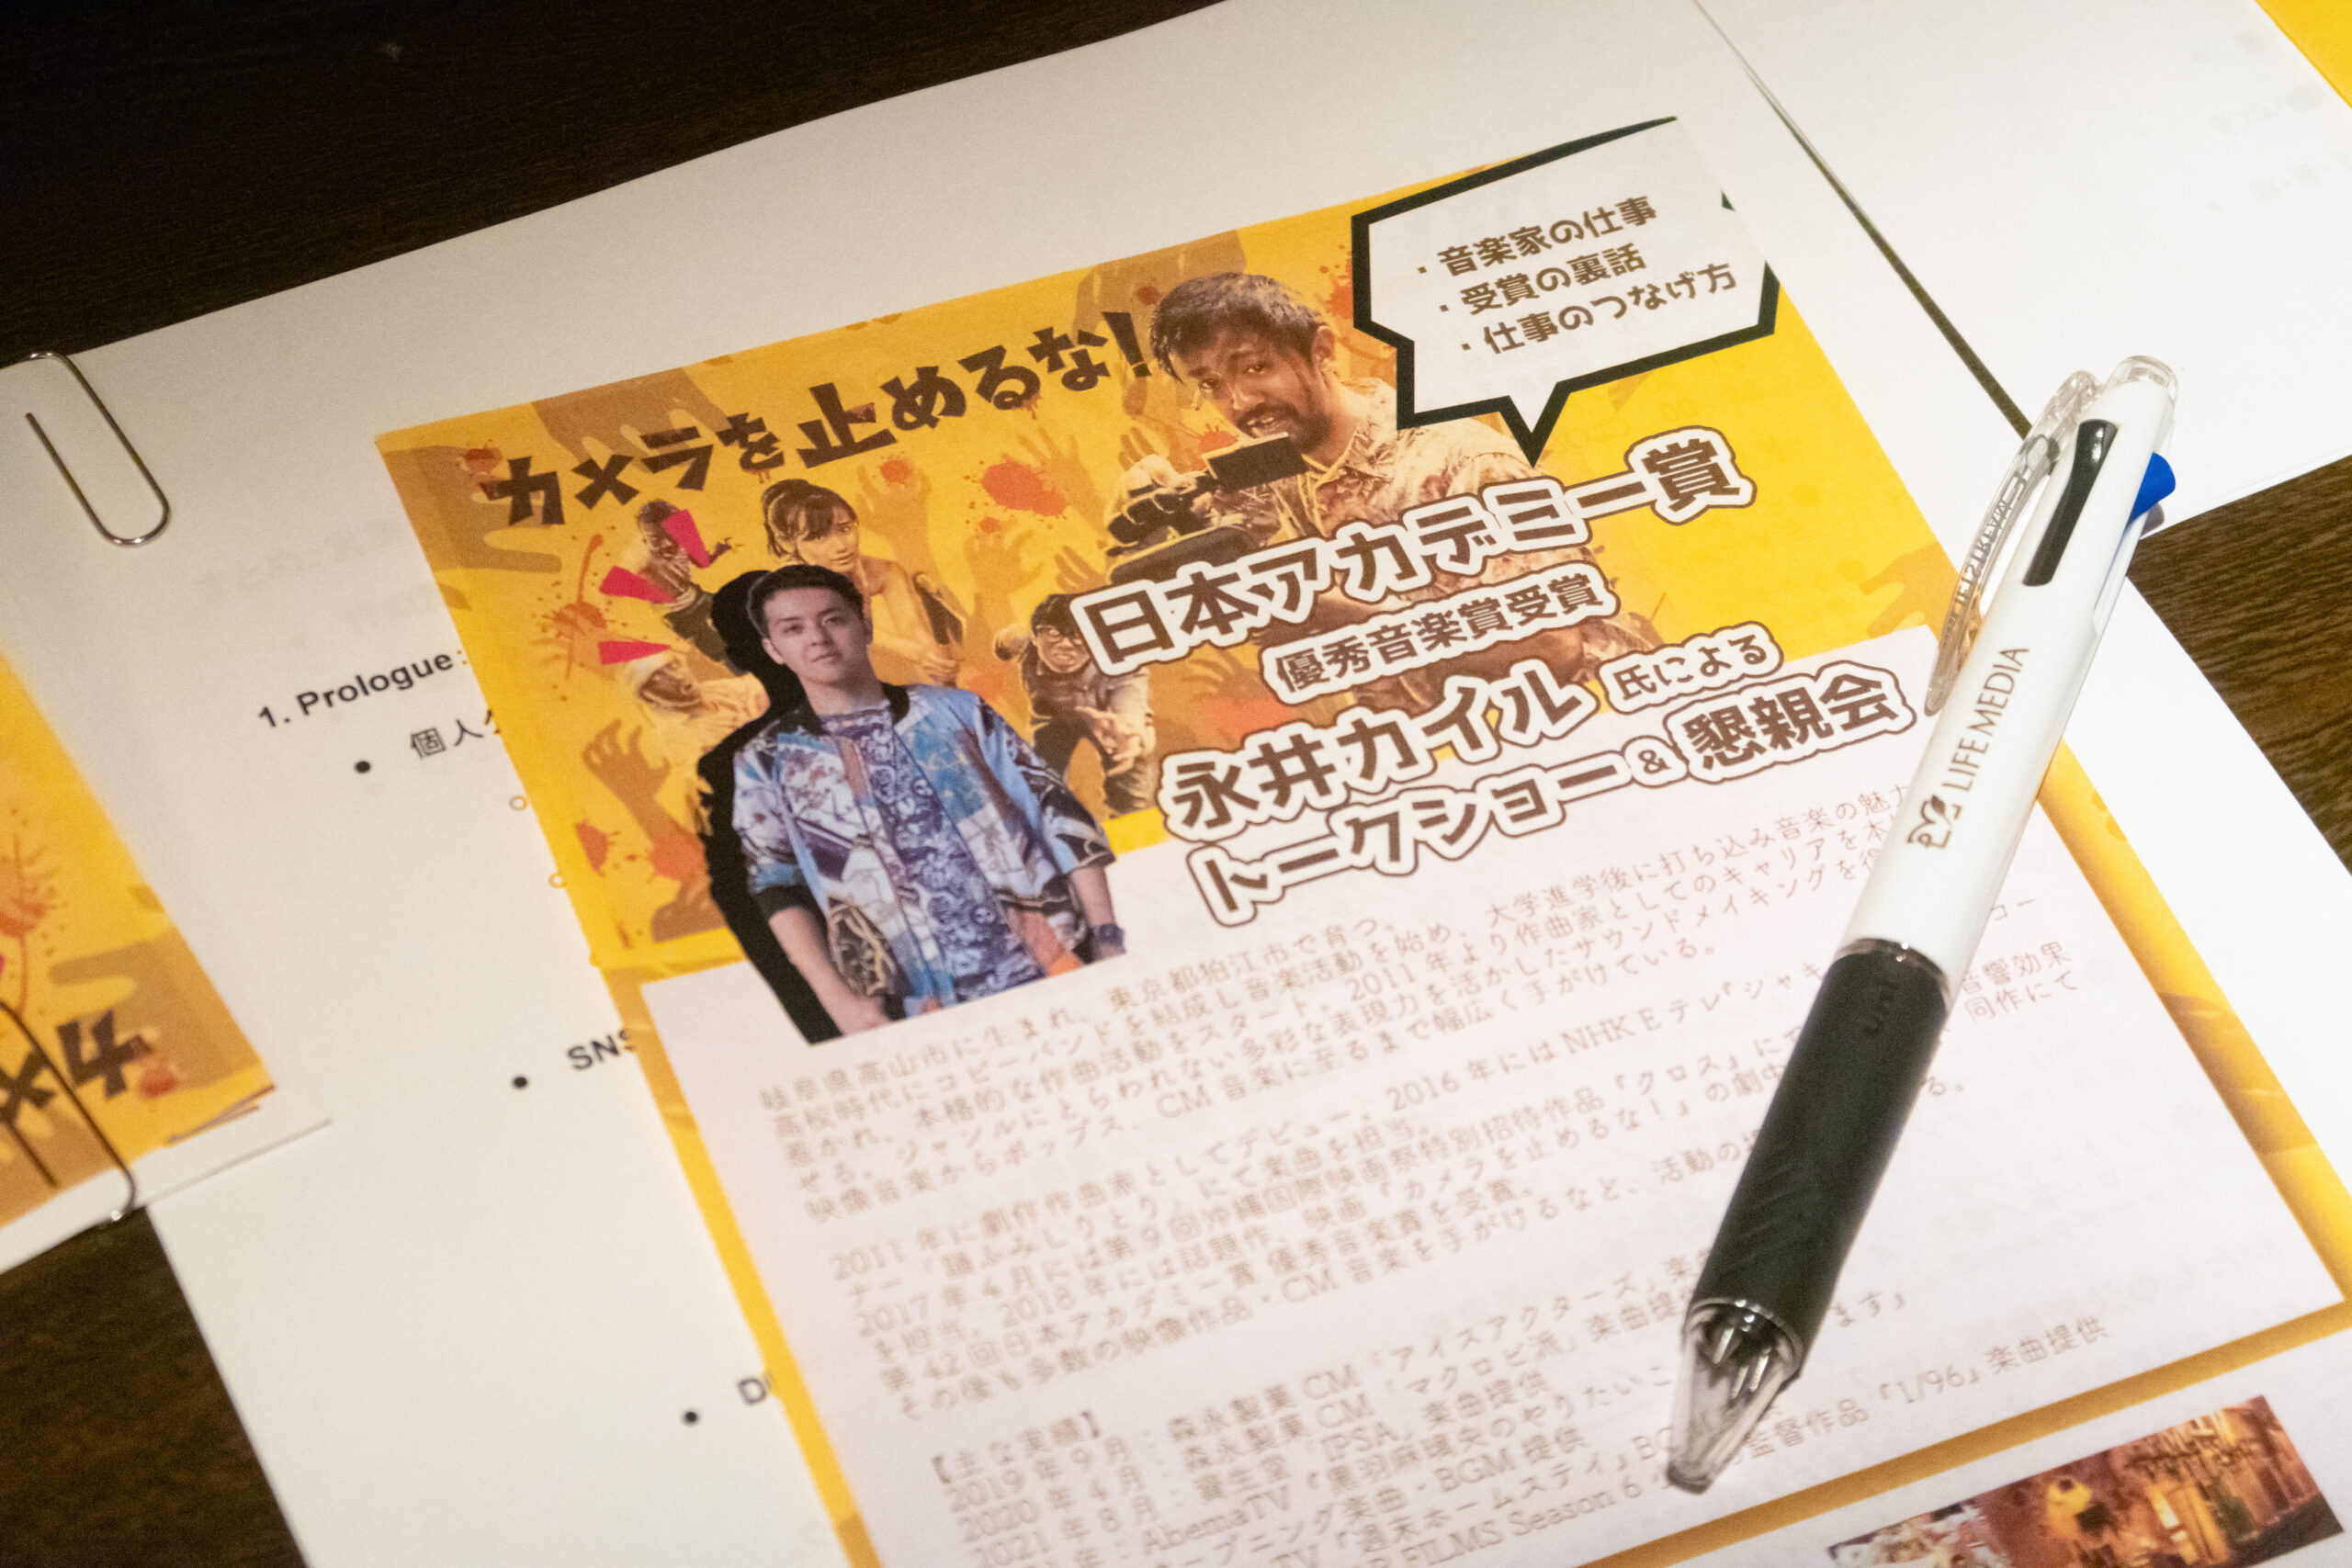 ・音楽家の仕事
・受賞の裏話
・仕事のつなげ方
カメラを止めるな!
日本アカデミー賞
優秀音楽賞受賞
永井カイル 氏による
トークショー & 懇親会
LIFE MEDIA
uni
1. Prologue:
個人
SNS
カメ
岐阜県高山市に生まれ、東京都狛江市で育つ。
高校時代にコピーバンドを結成し音楽活動を始め、大学進学後に打ち込み音楽の魅力
惹かれ、本格的な作曲活動をスタート。2011年より作曲家としてのキャリアを本
せる。ジャンルにとらわれない多彩な表現力を活かしたサウンドメイキングを得
映像音楽からポップス、CM音楽に至るまで幅広く手がけている。
2011年に劇作作曲家としてデビュー。2016年にはNHK Eテレ『シャキ コー
ナー『謎ふみしりとり』にて楽曲を担当。
2017年4月には第9回沖縄国際映画祭特別招待作品『クロス』にて 音響効果
を担当。2018年には話題作、映画『カメラを止めるな!』の劇中 同作にて
第42回日本アカデミー賞 優秀音楽賞を受賞。
その後も多数の映像作品・CM音楽を手がけるなど、活動の る。
【主な実績】
2019年9月：森永製菓 CM「アイスアクターズ」楽
2020年4月：森永製菓 CM「マクロビ派」楽曲提
2021年8月：資生堂「IPSA」楽曲提供
年：AbemaTV『黒羽麻璃央のやりたいこ ます』
ープニング楽曲・BGM提供
TV『週末ホームステイ』BG
FILMS Season 6 監督作品『1/96』楽曲提供